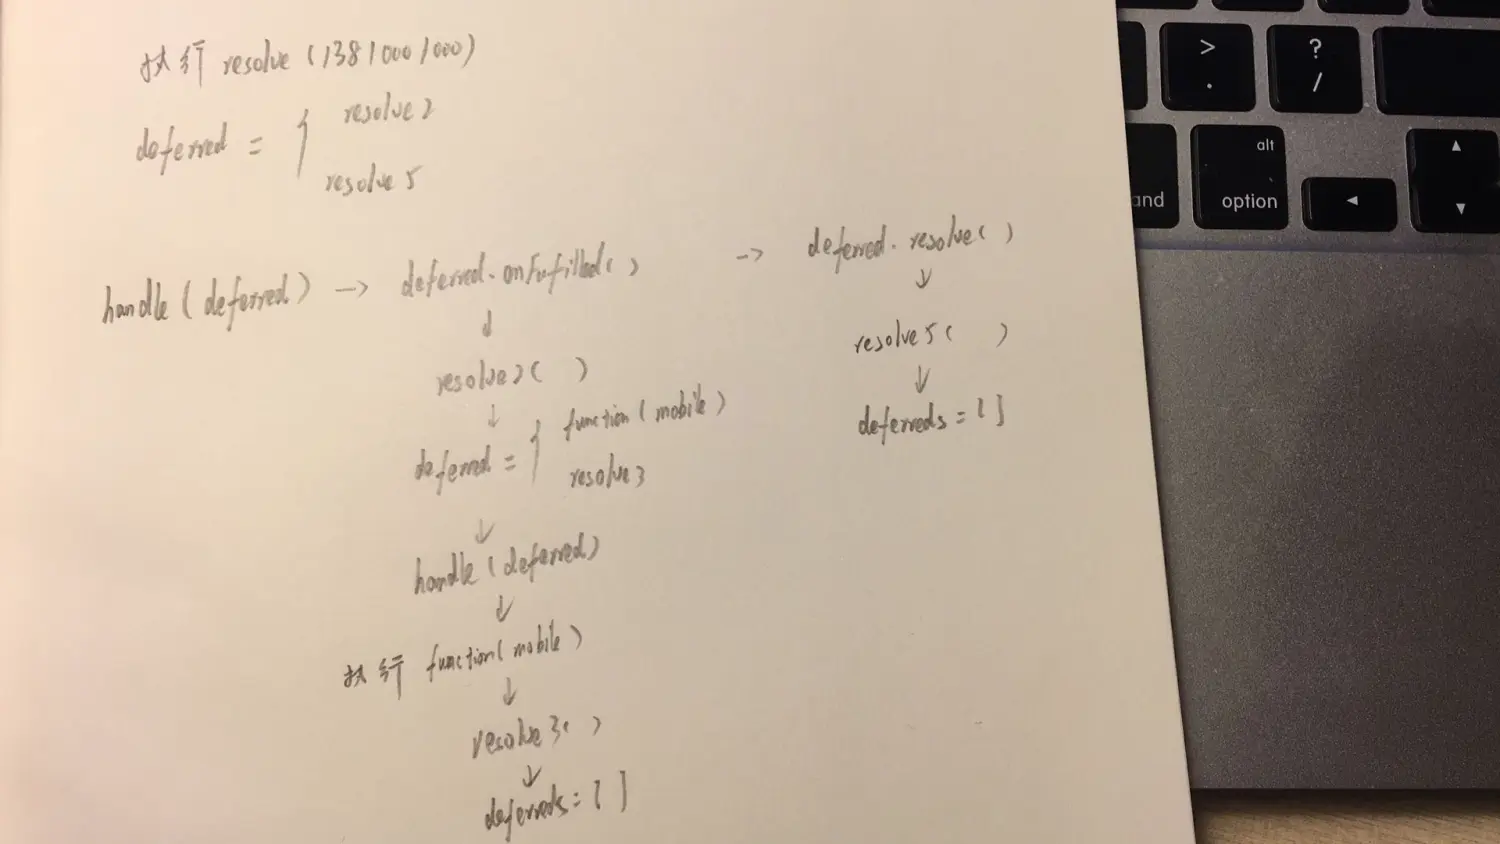 执行 resolve(13810001000)
deferred = { resolve2
resolve5
handle(deferred) -> deferred.onFufilled() -> deferred.resolve()
↓ ↓
resolve2( ) resolve5( )
↓ ↓
deferred = { function(mobile) deferreds = []
resolve3
↓
handle(deferred)
↓
执行 function(mobile)
↓
resolve3( )
↓
deferreds = []
> .
? /
alt
option
◄
▲
▼